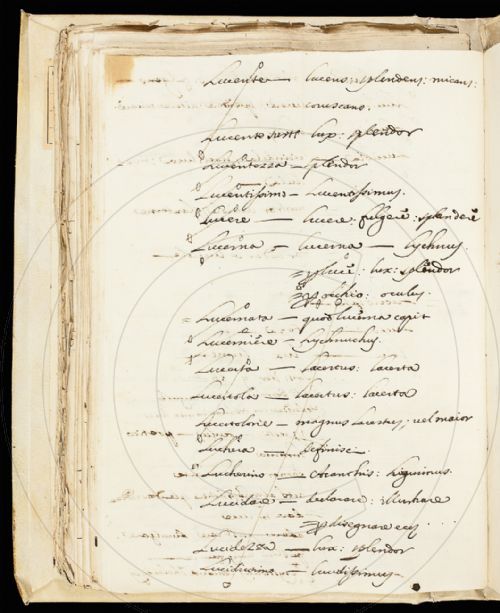 Lucente — lucens: splendens: micans:
coruscans.
lux: splendor
Lucentezza — splendor
Lucentissimo — Lucentissimus.
Lucere — lucere: fulgere: splendere
Lucerna — lucerna — lychnus.
lux: splendor
occhio: oculus.
Lucernata — quod lucerna capit
Lucerniere — Lychnuchus.
Lucerta — lacertus: lacerta
Lucertola — lacertus: lacerta
Lucertolone — magnus lacertus, vel maior
Luchera —
Lucherino —
Lucidare — declarare: illustrare
disegnare
Lucidezza — lux: splendor
Lucidissimo — lucidissimus